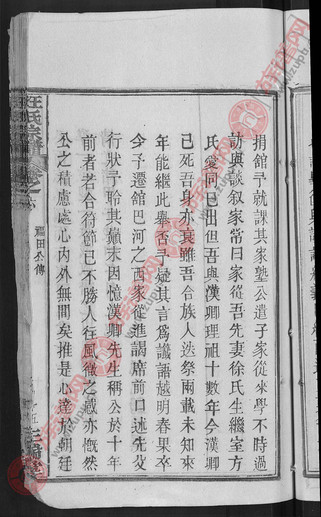 捐館予就課其家塾公遣子家從來學不時過
訪與談叙家常曰家從吾先妻徐氏生繼室方
氏愛同己出但吾與漢卿理祖十數年今漢卿
已死吾身亦衰雖吾合族人迭祭兩載未知來
年能繼此舉否予疑其言爲讖語越明春果卒
今予遷館巴河之西家從進謁席前口述先父
行狀予聆其顛末因憶漢卿先生稱公於十年
前者若合符節已不勝人往風微之感亦慨然
公之積慮處心內外無間矣推是心達於朝廷
汪氏宗譜
卷之六
福田公傳